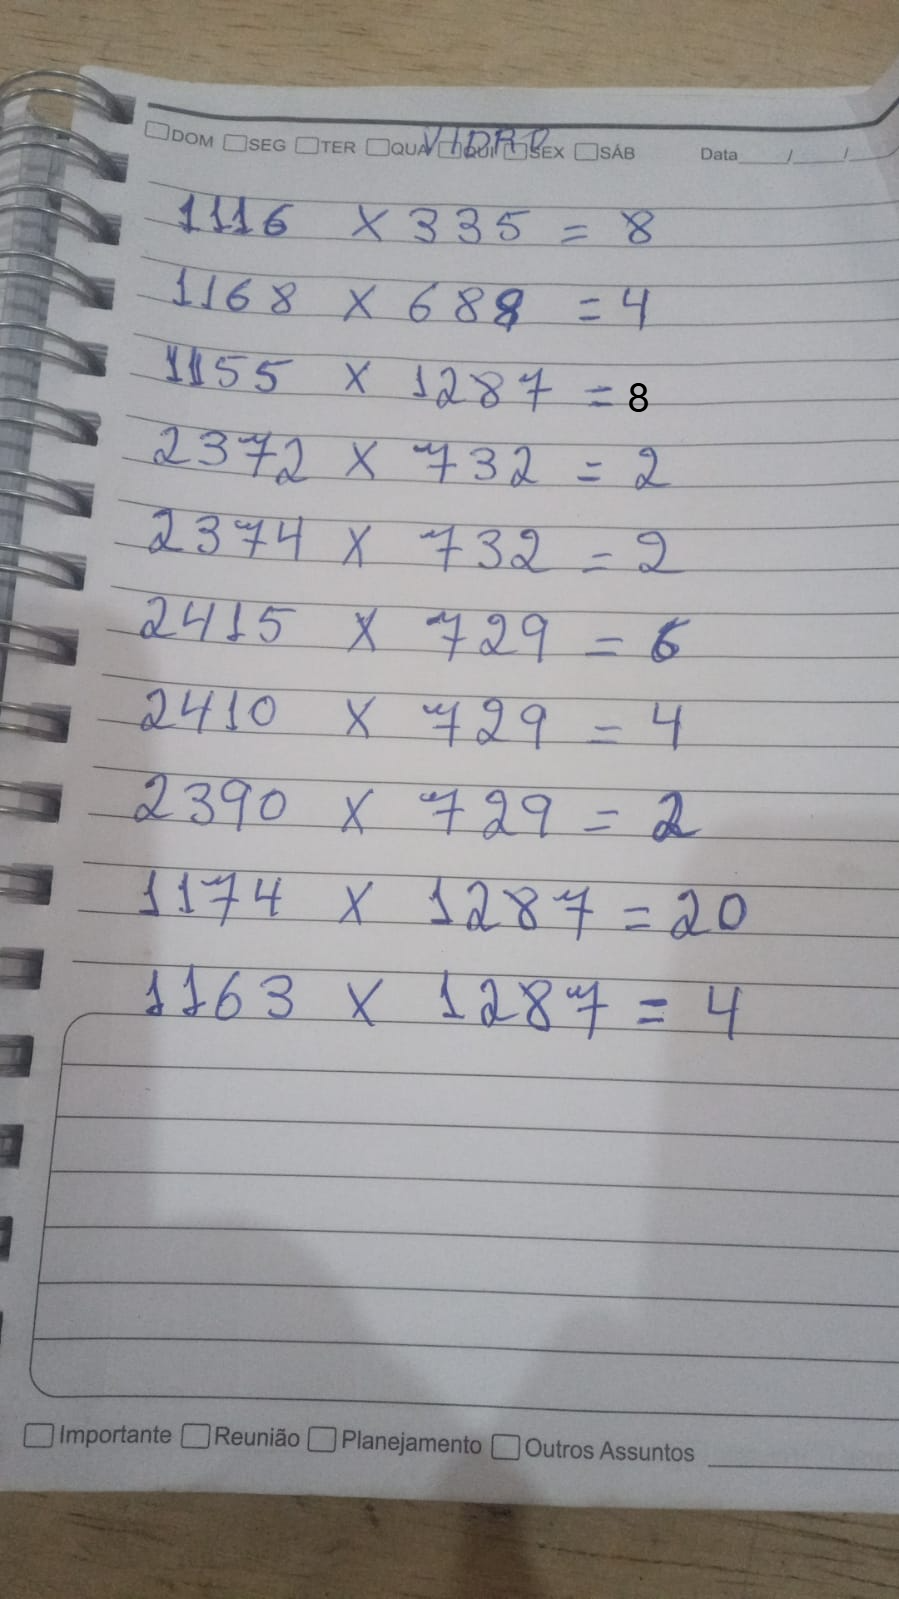 VIDRO
DOM SEG TER QUA QUI SEX SÁB Data / /
1116 X 335 = 8
1168 X 688 = 4
1155 X 1287 = 8
2372 X 732 = 2
2374 X 732 = 2
2415 X 729 = 6
2410 X 729 = 4
2390 X 729 = 2
1174 X 1287 = 20
1163 X 1287 = 4
Importante Reunião Planejamento Outros Assuntos